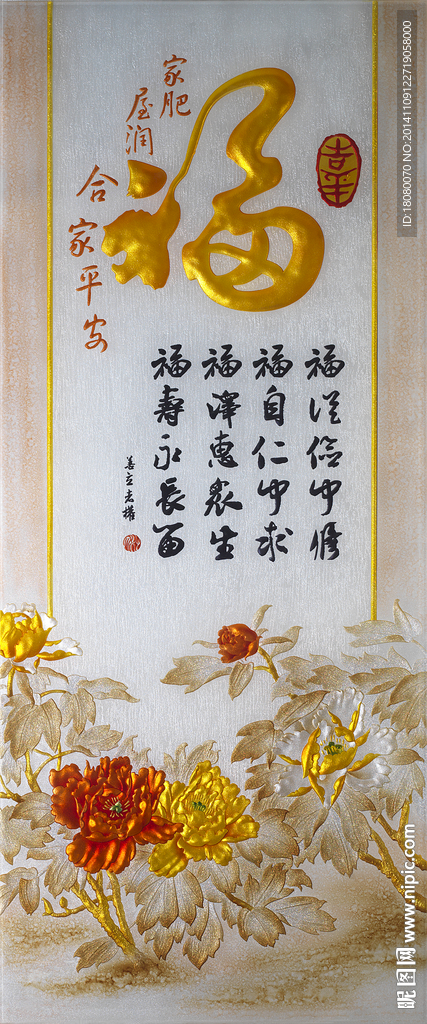 福
家肥
屋润
合家平安
吉羊
福从俭中修
福自仁中求
福泽惠众生
福寿永长留
善立老权
ID:18080070 NO:20141109122719058000
昵图网 www.nipic.com